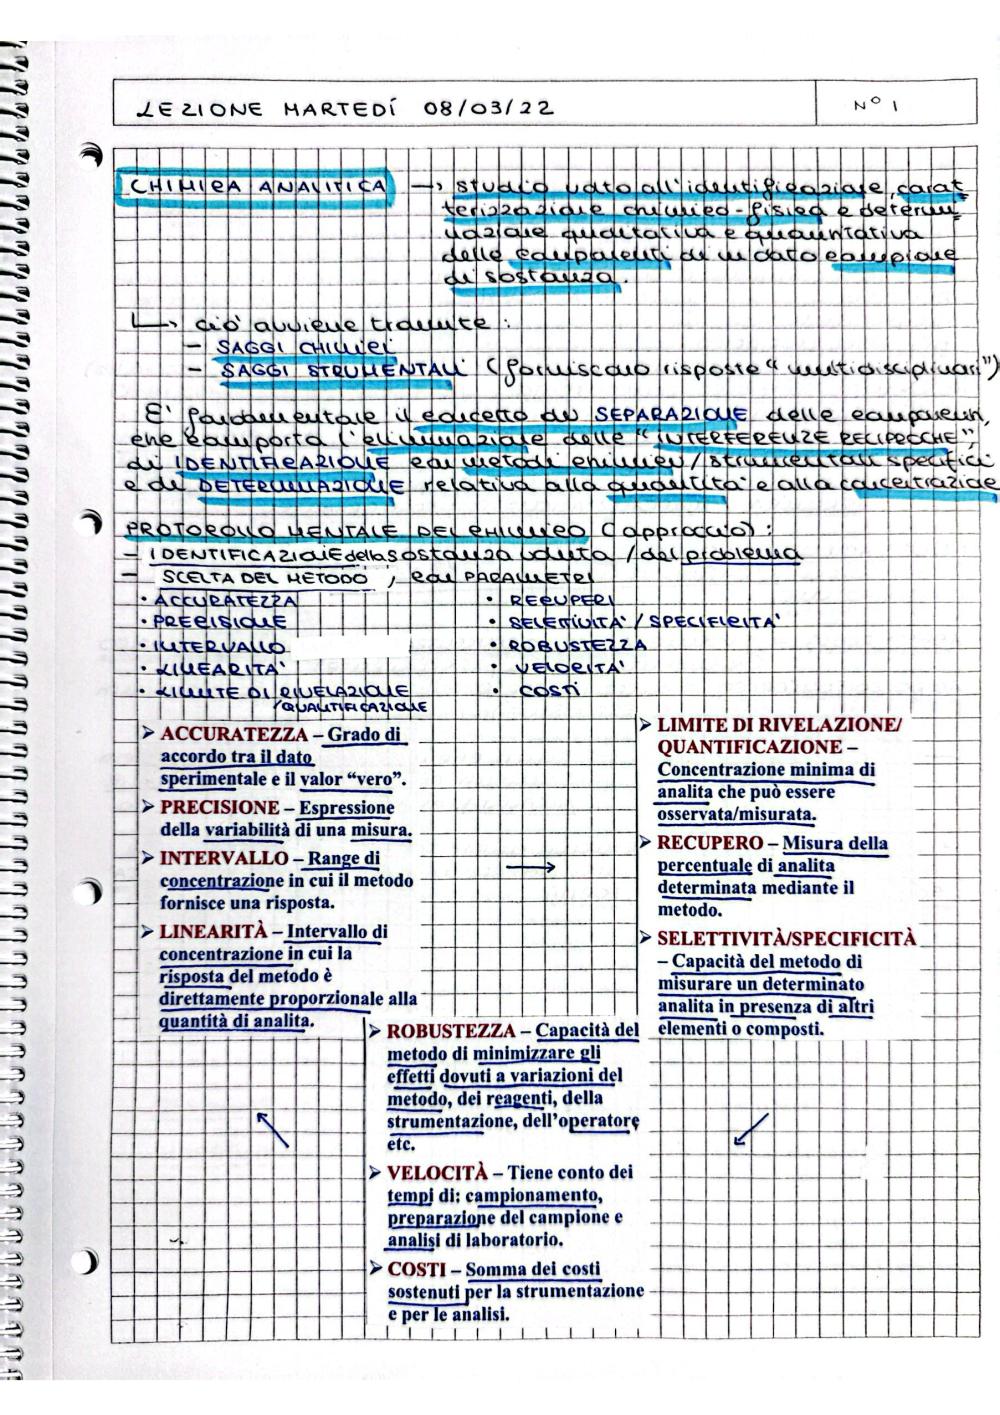 LEZIONE MARTEDÍ 08/03/22
N° 1
CHIMICA ANALITICA → studio volto all'identificazione, carat
terizzazione chimico-fisica e determi
nazione qualitativa e quantitativa
delle componenti di un dato campione
di sostanza.
↳ ciò avviene tramite:
- SAGGI CHIMICI
- SAGGI STRUMENTALI (forniscono risposte "multidisciplinari")
E' fondamentale il concetto di SEPARAZIONE delle componenti,
che comporta l'eliminazione delle "INTERFERENZE RECIPROCHE",
di IDENTIFICAZIONE con metodi chimici/strumentali specifici
e di DETERMINAZIONE relativa alla quantità e alla concentrazione
PROTOCOLLO MENTALE DEL CHIMICO (approccio):
- IDENTIFICAZIONE della sostanza voluta / del problema
- SCELTA DEL METODO, con PARAMETRI
• ACCURATEZZA
• PRECISIONE
• INTERVALLO
• LINEARITA'
• LIMITE DI RIVELAZIONE
/QUANTIFICAZIONE
• RECUPERI
• SELETTIVITA' / SPECIFICITA'
• ROBUSTEZZA
• VELOCITA'
• COSTI
➢ ACCURATEZZA – Grado di
accordo tra il dato
sperimentale e il valor “vero”.
➢ PRECISIONE – Espressione
della variabilità di una misura.
➢ INTERVALLO – Range di
concentrazione in cui il metodo
fornisce una risposta.
➢ LINEARITÀ – Intervallo di
concentrazione in cui la
risposta del metodo è
direttamente proporzionale alla
quantità di analita.
→
➢ LIMITE DI RIVELAZIONE/
QUANTIFICAZIONE –
Concentrazione minima di
analita che può essere
osservata/misurata.
➢ RECUPERO – Misura della
percentuale di analita
determinata mediante il
metodo.
➢ SELETTIVITÀ/SPECIFICITÀ
– Capacità del metodo di
misurare un determinato
analita in presenza di altri
elementi o composti.
➢ ROBUSTEZZA – Capacità del
metodo di minimizzare gli
effetti dovuti a variazioni del
metodo, dei reagenti, della
strumentazione, dell’operatore
etc.
➢ VELOCITÀ – Tiene conto dei
tempi di: campionamento,
preparazione del campione e
analisi di laboratorio.
➢ COSTI – Somma dei costi
sostenuti per la strumentazione
e per le analisi.